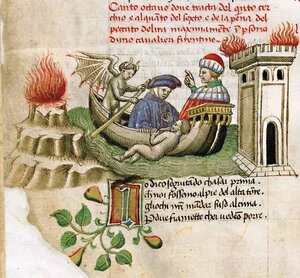 Canto octavo dove tracta del quito cer
chio e alquāto del sexto e de la pena del
peccato de lira maximamēte ī psona
dūno cavalieri fiorentino
Io dico seguitando ch asai prima
ch noi fossemo al pie de l alta torre
gliochi nrī nādar suso al cima
P due fiamette che i vedēm porre